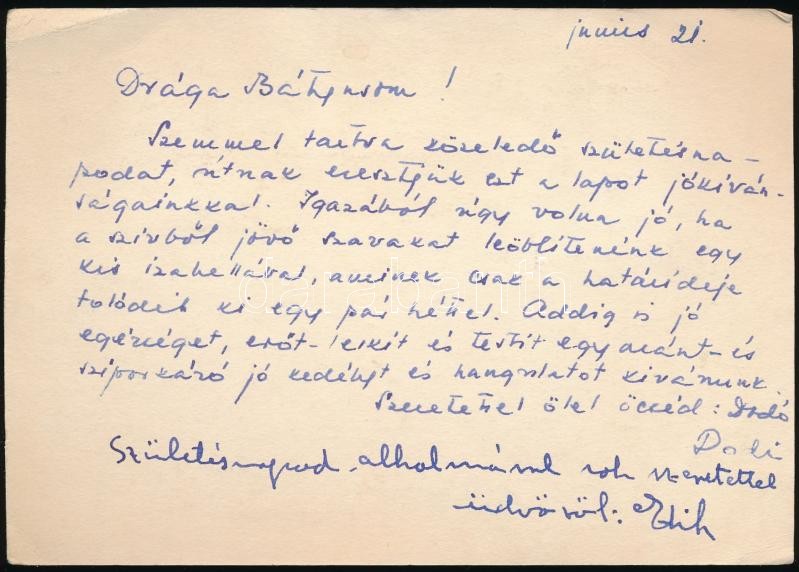 június 21.
Drága Bátyusom!
Szemmel tartva közeledő születésna-
podat, útnak eresztjük ezt a lapot jókíván-
ságainkkal. Igazából úgy volna jó, ha
a szívből jövő szavakat leöblítenénk egy
kis izabellával, aminek csak a határideje
tolódik ki egy pár héttel. Addig is jó
egészséget, erőt-lelkit és testit egyaránt-és
sziporkázó jó kedélyt és hangulatot kívánunk
Szeretettel ölel öcséd: Dodó
Születésnapod alkalmával sok szeretettel
üdvözöl: Edith
darabanth